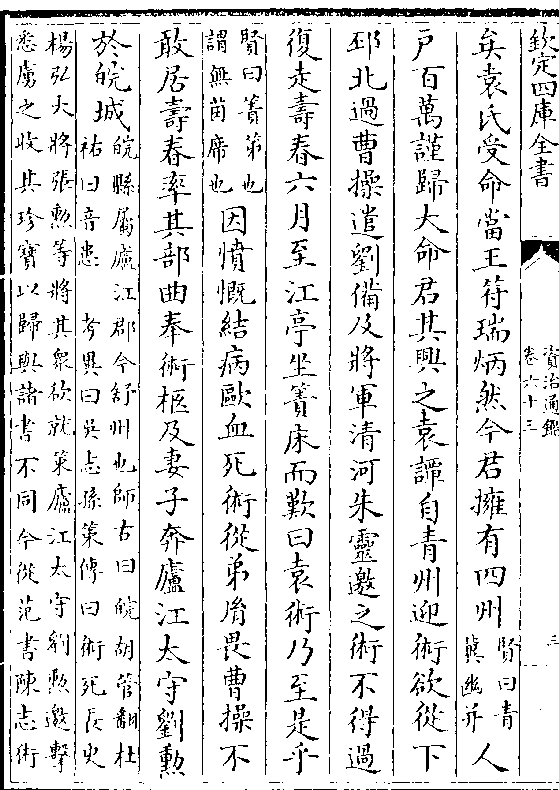 欽定四庫全書
資治通鑑
卷六十三
三
矣袁氏受命當王符瑞炳然今君擁有四州
賢曰青
冀幽并
人
戶百萬謹歸大命君其興之袁譚自青州迎術欲從下
邳北過曹操遣劉備及將軍清河朱靈邀之術不得過
復走壽春六月至江亭坐簀床而歎曰袁術乃至是乎
賢曰簀第也
謂無茵席也
因憤慨結病歐血死術從弟胤畏曹操不
敢居壽春率其部曲奉術柩及妻子奔廬江太守劉勲
於皖城
皖縣屬廬江郡今舒州也師古曰皖胡管翻杜
祐曰音患 考異曰吳志孫策傳曰術死長史
楊弘大將張勲等將其衆欲就策廬江太守劉勲邀擊
悉虜之收其珍寶以歸與諸書不同今從范書陳志術